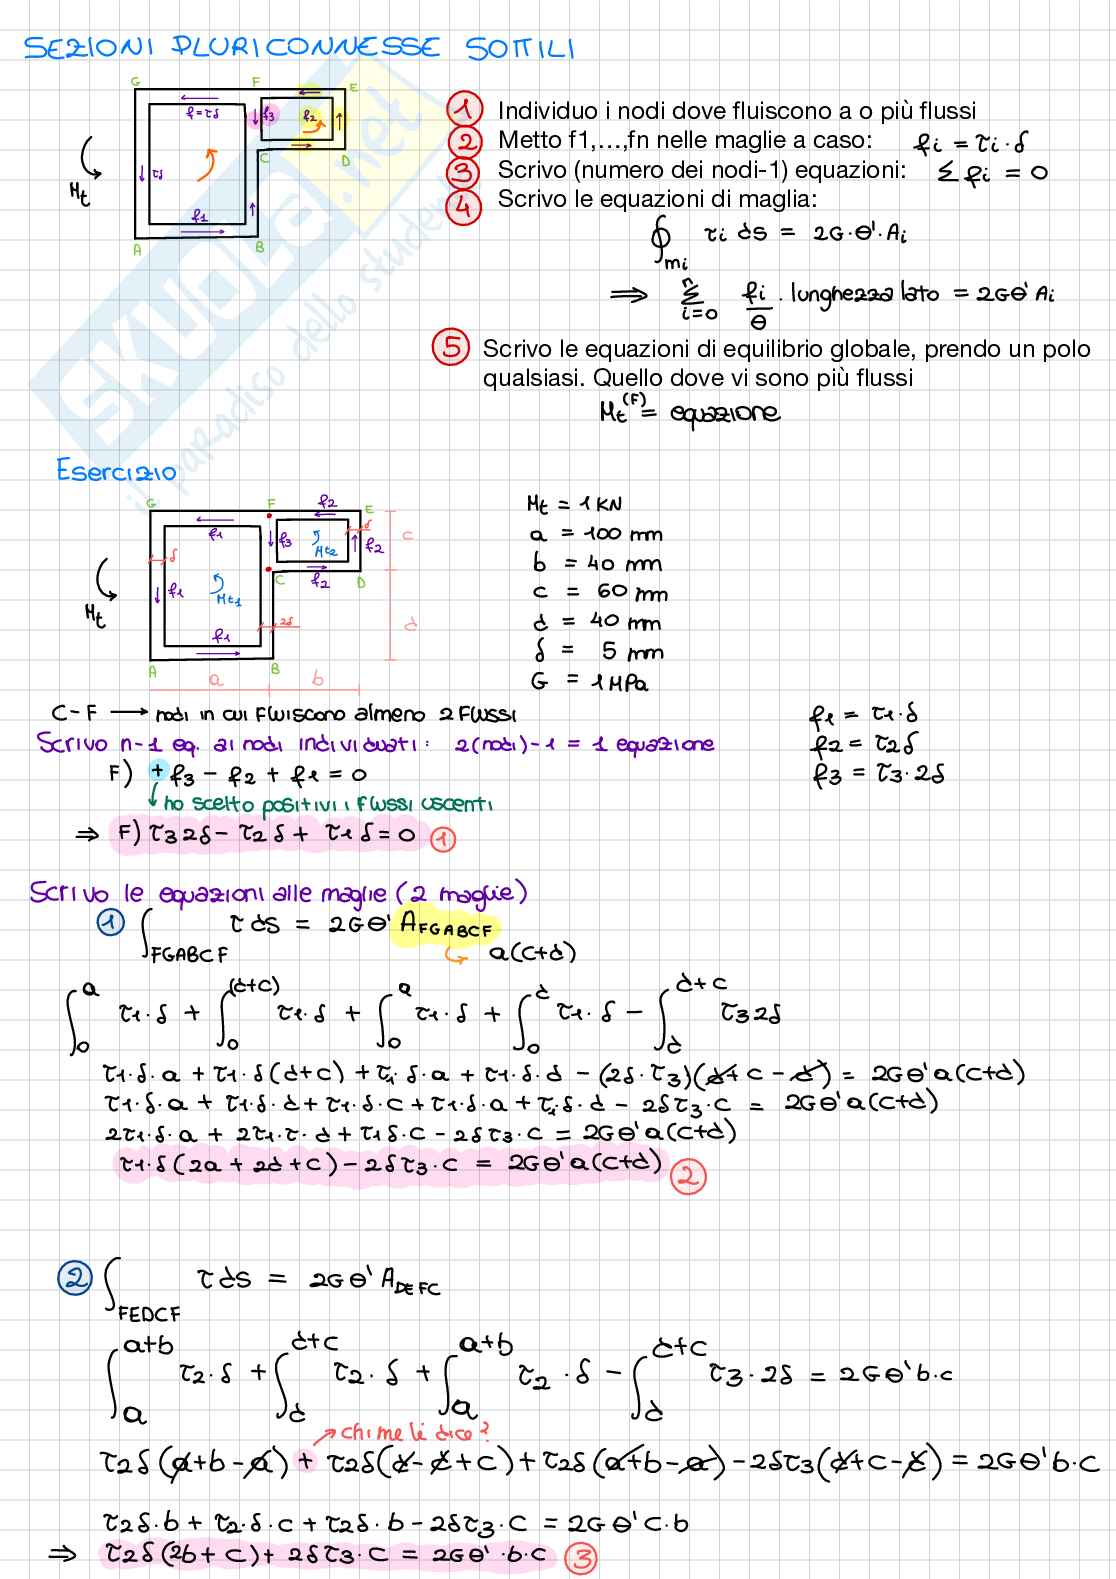 SEZIONI PLURICONNESSE SOTTILI
G F E
f=τδ f3 f2
C D
τδ
Mt
f1
A B
1 Individuo i nodi dove fluiscono a o più flussi
2 Metto f1,…,fn nelle maglie a caso: fi = τi·δ
3 Scrivo (numero dei nodi-1) equazioni: Σfi = 0
4 Scrivo le equazioni di maglia:
∮mi τi ds = 2G·θ'·Ai
⇒ Σ(i=0, n) fi/θ · lunghezza lato = 2Gθ'Ai
5 Scrivo le equazioni di equilibrio globale, prendo un polo
qualsiasi. Quello dove vi sono più flussi
Mt(F) = equazione
SKUOLA.net
il paradiso dello studente
Esercizio
G F f2 E
f1 f3 Mt2 f2 δ c
δ C f2 D
f1 Mt1
Mt 2δ d
f1
A B
a b
Mt = 1 KN
a = 100 mm
b = 40 mm
c = 60 mm
d = 40 mm
δ = 5 mm
G = 1 MPa
C-F → nodi in cui fluiscono almeno 2 flussi
Scrivo n-1 eq. ai nodi individuati: 2(nodi)-1 = 1 equazione
F) + f3 - f2 + f1 = 0
↓ ho scelto positivi i flussi uscenti
⇒ F) τ3 2δ - τ2 δ + τ1 δ = 0 1
f1 = τ1·δ
f2 = τ2δ
f3 = τ3·2δ
Scrivo le equazioni alle maglie (2 maglie)
1 ∫FGABCF τ ds = 2Gθ' AFGABCF
↪ a(c+d)
∫0^a τ1·δ + ∫0^(d+c) τ1·δ + ∫0^a τ1·δ + ∫0^d τ1·δ - ∫d^d+c τ3 2δ
τ1·δ·a + τ1·δ(d+c) + τ1·δ·a + τ1·δ·d - (2δ·τ3)(d+c-d) = 2Gθ'a(c+d)
τ1·δ·a + τ1·δ·d + τ1·δ·c + τ1·δ·a + τ1·δ·d - 2δτ3·c = 2Gθ'a(c+d)
2τ1·δ·a + 2τ1·τ·d + τ1δ·c - 2δτ3·c = 2Gθ'a(c+d)
τ1·δ(2a + 2d + c) - 2δτ3·c = 2Gθ'a(c+d) 2
2 ∫FEDCF τ ds = 2Gθ' ADEFC
∫a^a+b τ2·δ + ∫d^d+c τ2·δ + ∫a^a+b τ2·δ - ∫d^d+c τ3·2δ = 2Gθ'b·c
↗ chi me lo dice?
τ2δ(a+b-a) + τ2δ(d-d+c) + τ2δ(a+b-a) - 2δτ3(d+c-d) = 2Gθ'b·c
τ2δ·b + τ2·δ·c + τ2δ·b - 2δτ3·c = 2Gθ'c·b
⇒ τ2δ(2b+c) + 2δτ3·c = 2Gθ'·b·c 3